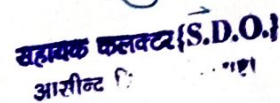 सहायक कलक्टर {S.D.O.}
आसीन्द